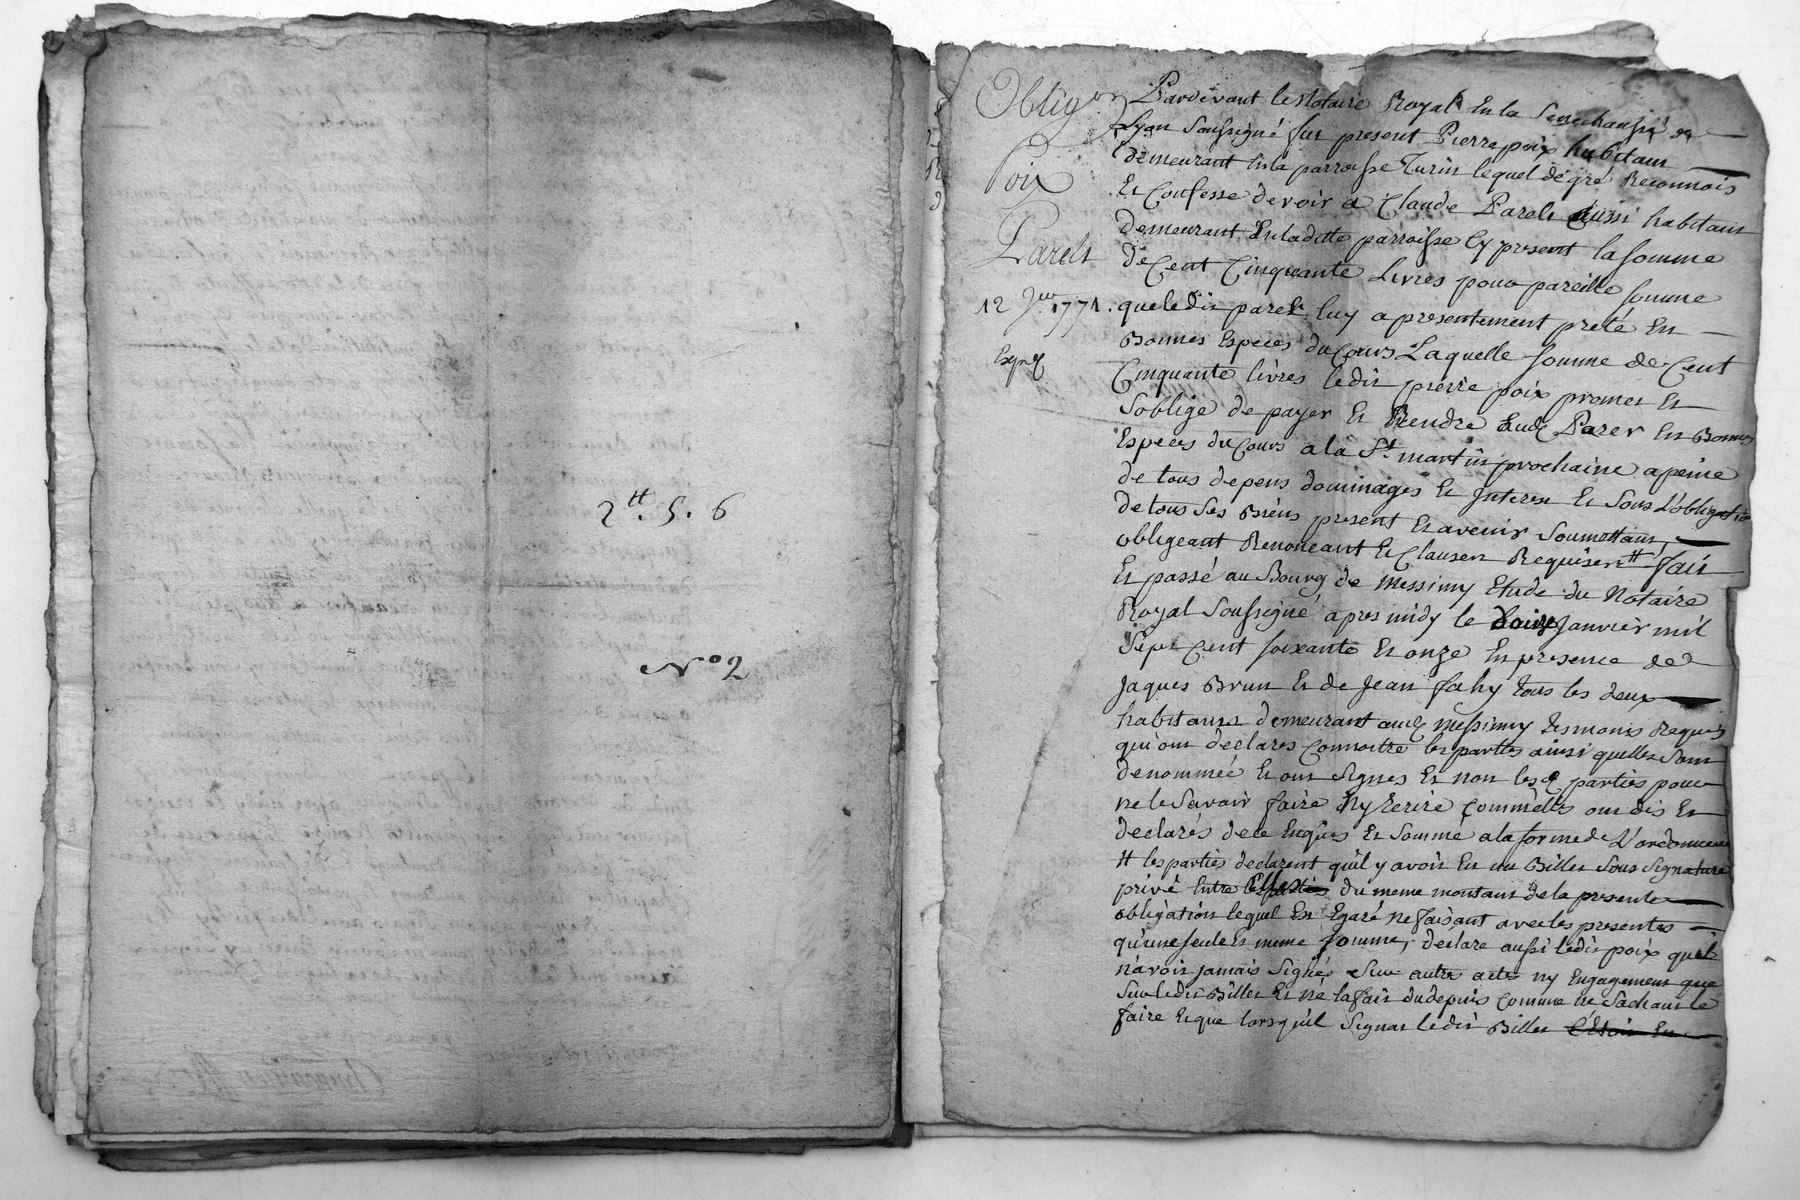 2tt. 5. 6
No 2
Oblig.on
Poix
Parels
12 Jer 1771.
Exped
Pardevant le Notaire Royal En la Senechaussé de
Lyon Soussigné fut present Pierre poix habitant
demeurant En la parroisse Turin lequel de gré Reconnois
Et Confesse devoir a Claude Parels aussi habitant
demeurant En laditte parroisse Cy present la somme
de Cent Cinquante Livres pour pareille somme
que le dit parer luy a presentement preté En
Bonnes Especes du Cours Laquelle somme de Cent
Cinquante livres ledit pierre poix promet Et
S'oblige de payer Et Rendre aud Parer En Bonnes
Especes du Cours a la St martin prochaine a peine
de tous depens dommages Et Interest Et Sous L'obligation
de tous Ses Biens present Et avenir Soumettant,
obligeant Renonceant Et Clauses Requises tt fait
Et passé au Bourg de Messimy Etude du Notaire
Royal Soussigné apres midy le Douze Janvier mil
Sept Cent soixante Et onze En presence de
Jaques Brun Et de Jean Fahy tous les deux
habitants demeurant aud Messimy temoins Requis
qui ont declares Connoitre les parties ainsi quelles Sont
denommée Et ont Signes Et non lesd parties pour
ne le Savoir faire Ny Ecrire Comm'elles ont dit Et
declarés de ce Enquis Et Sommé a la forme de L'ordonnance
tt les parties declarent qu'il y avoit Eu un Billet Sous Signature
privé Entre Elles du meme montant de la presente
obligation lequel Est Egaré ne faisant avec les presentes
qu'une seule Et meme somme, declare aussi ledit poix qu'il
n'avoit jamais Signés Sur autre acte ny Engagement que
Sur ledit Billet Et ne la fait du depuis Comme ne Sachant le
faire Et que lorsqu'il Signat ledit Billet C'étoit En